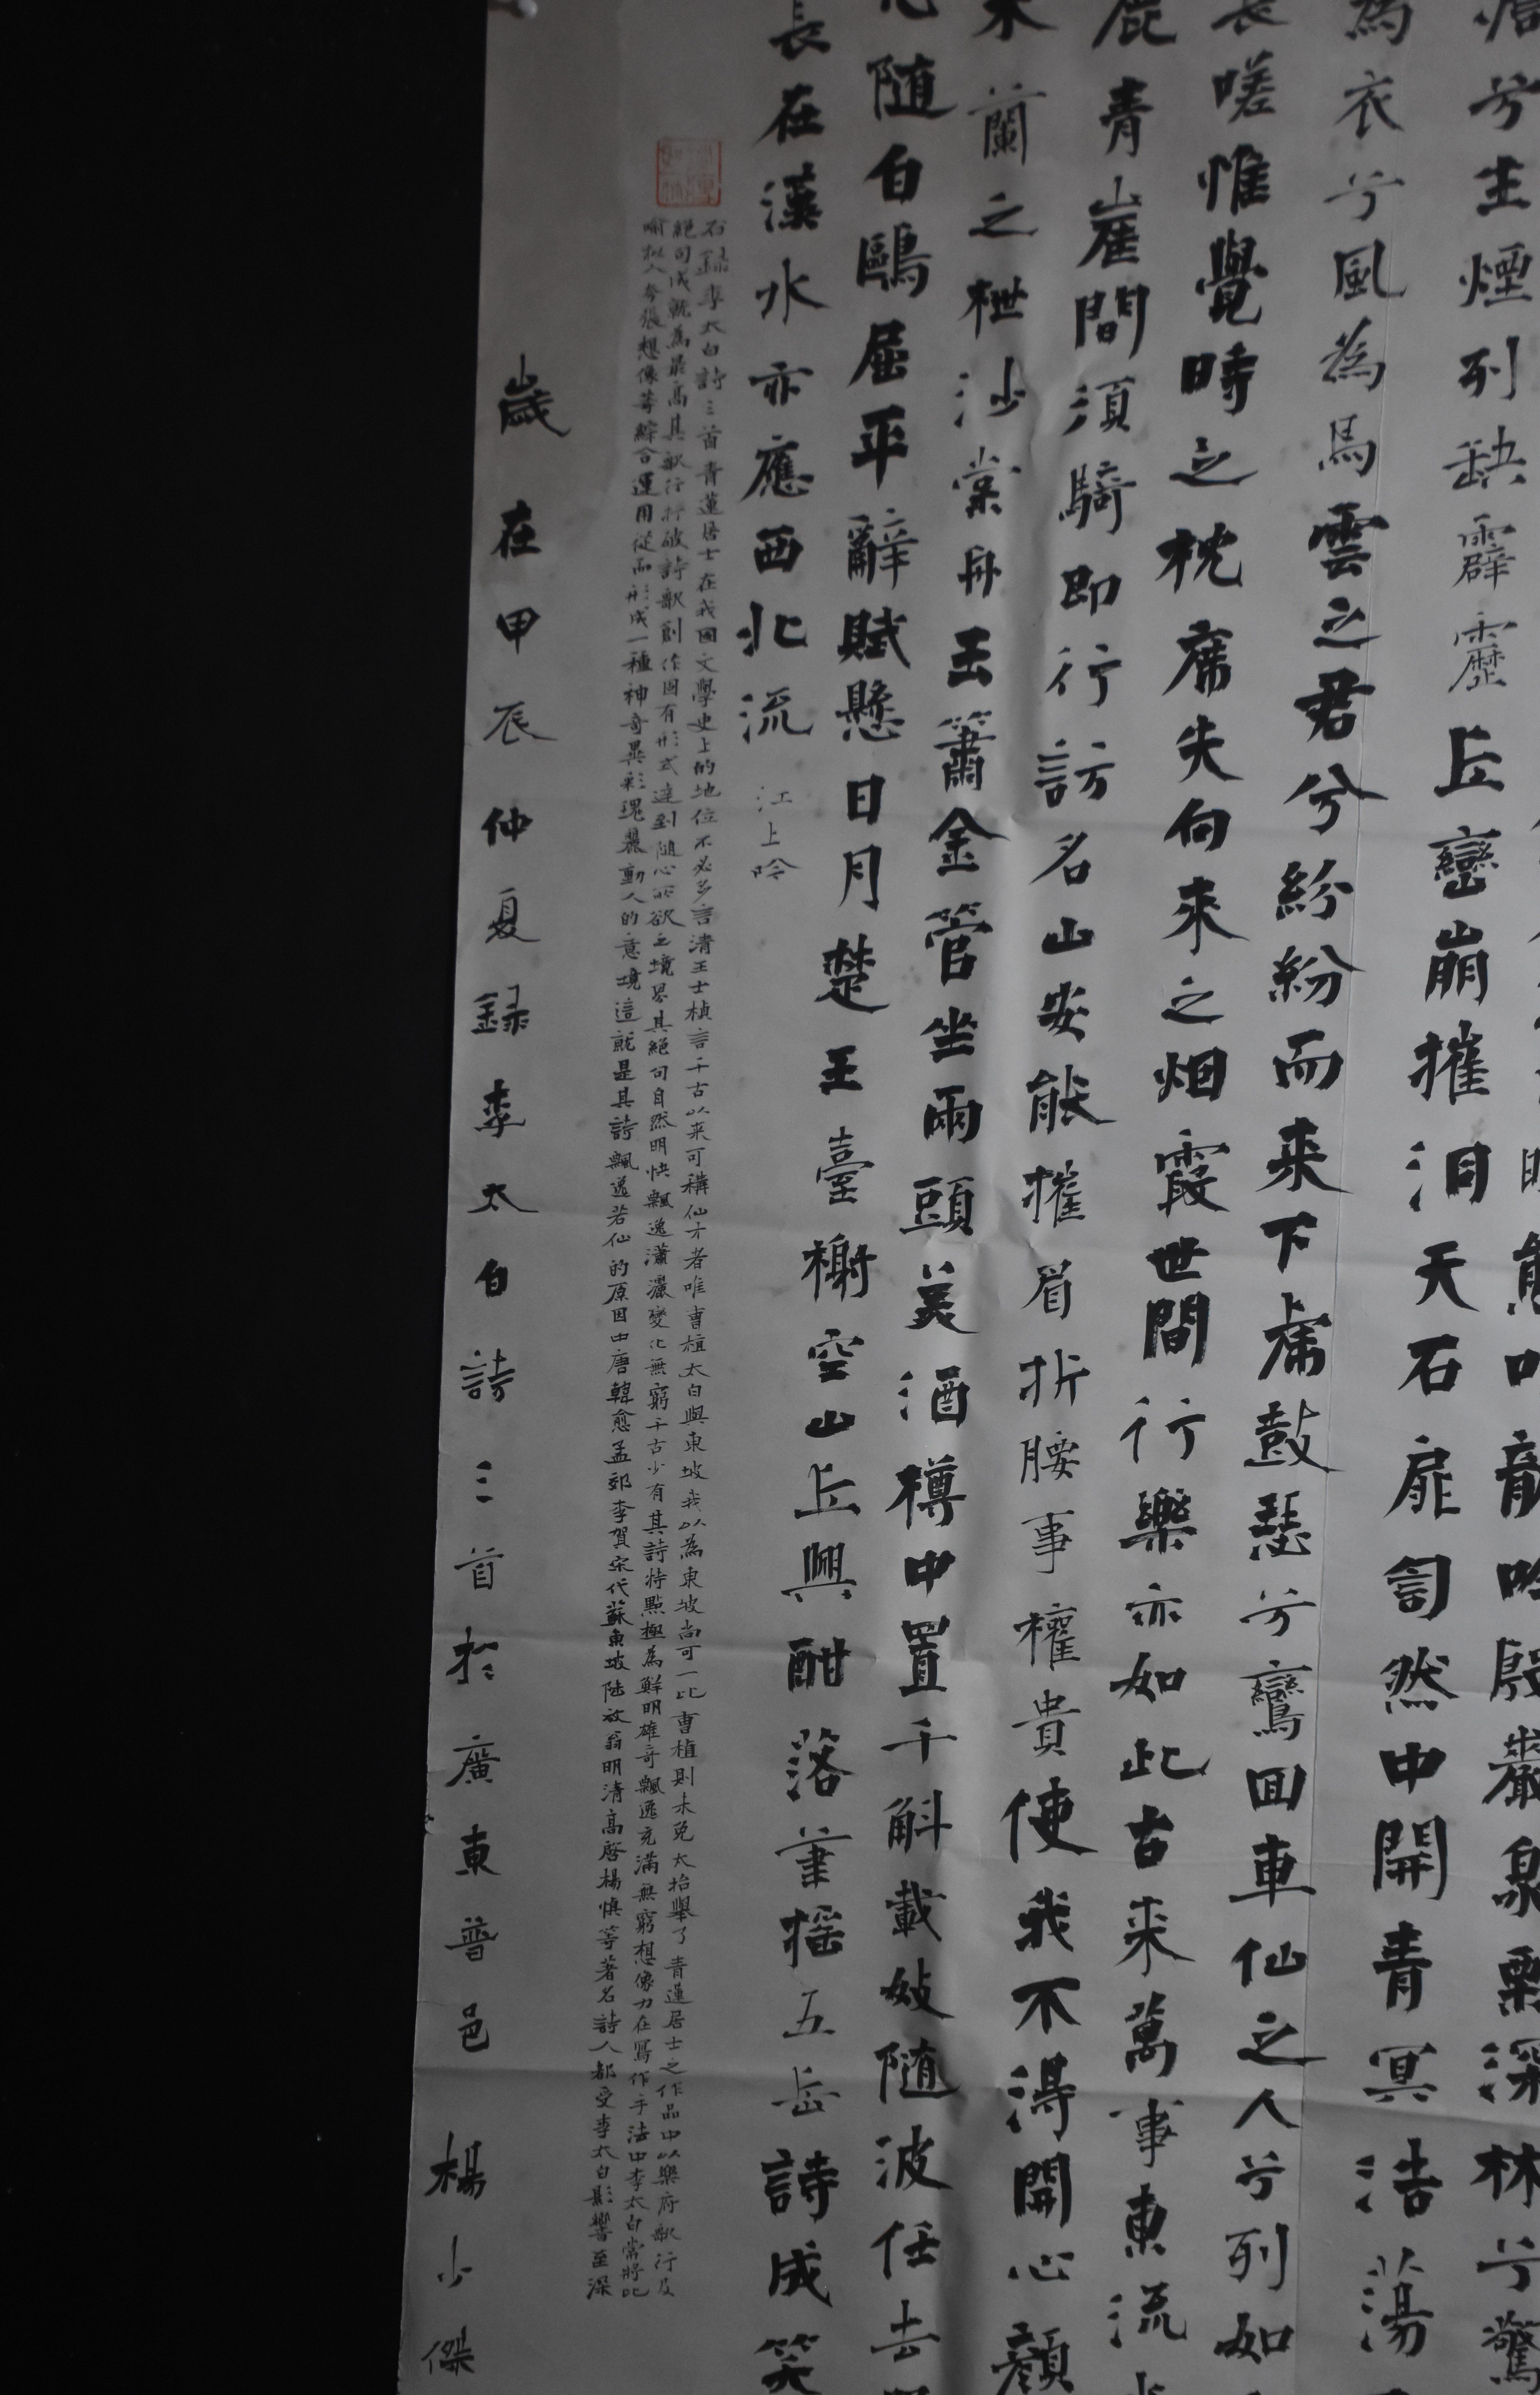 兮生煙列缺霹靂丘巒崩摧洞天石扉訇然中開青冥浩蕩
龍吟殷巖泉慄深林兮驚
為衣兮風為馬雲之君兮紛紛而来下虎鼓瑟兮鸞回車仙之人兮列如
長嗟惟覺時之枕席失向来之烟霞世間行樂亦如此古来萬事東流
鹿青崖間須騎即行訪名山安能摧眉折腰事權貴使我不得開心顔
木蘭之枻沙棠舟玉簫金管坐兩頭美酒樽中置千斛載妓随波任去
随白鷗屈平辭賦懸日月楚王臺榭空山丘興酣落筆摇五岳詩成笑
長在漢水亦應西北流 江上吟
右録李太白詩三首青蓮居士在我國文學史上的地位不必多言清王士楨言千古以来可稱仙才者唯曹植太白與東坡我以為東坡尚可一比曹植則未免太抬舉了青蓮居士之作品中以樂府歌行及
絕句成就為最高其歌行打破詩歌創作固有形式達到随心所欲之境界其絕句自然明快飄逸瀟灑變化無窮千古少有其詩特點極為鮮明雄奇飄逸充滿無窮想像力在寫作手法中李太白常將比
喻拟人夸張想像等綜合運用從而形成一種神奇異彩瑰麗動人的意境這就是其詩飄逸若仙的原因中唐韓愈孟郊李賀宋代蘇東坡陸放翁明清高啓楊慎等著名詩人都受李太白影響至深
歲在甲辰仲夏録李太白詩三首於廣東普邑楊少傑